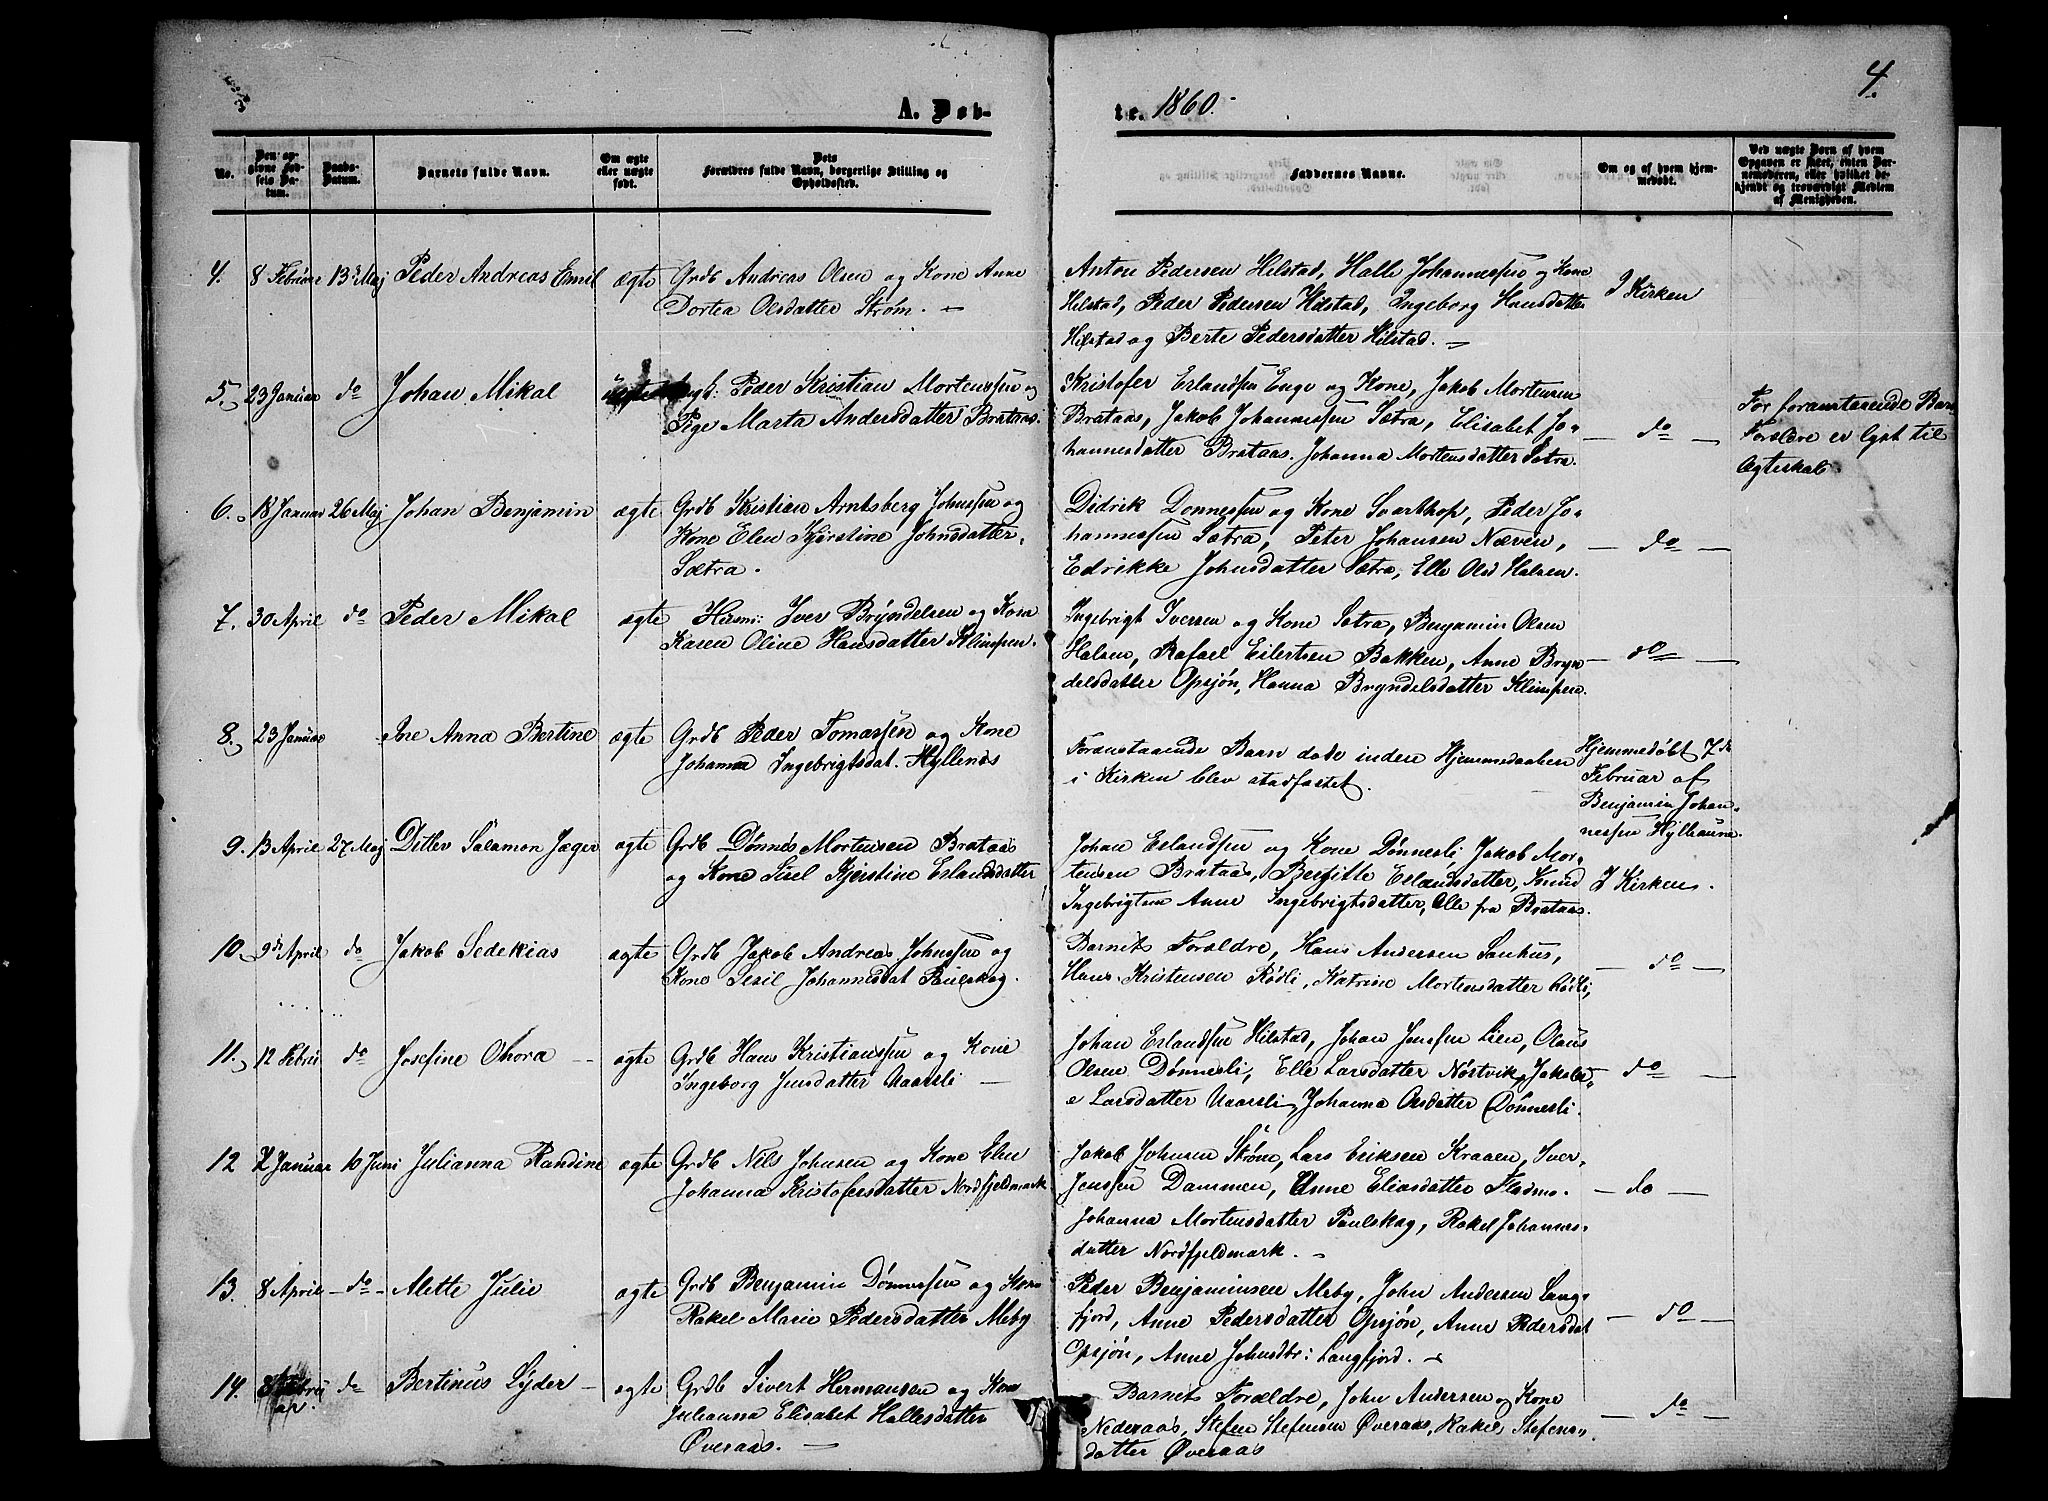 4.
A. Døb-
te. 1860.
No.
Den op-
givne Fød-
sels Da-
tum.
Daabs-
Datum.
Barnets fulde Navn.
Om ægte
eller uægte
født.
Dets
Forældres fulde Navn, borgerlige Stilling og
Opholdssted.
Faddernes Navne.
Om og af hvem hjem-
medøbt.
Ved uægte Børn af hvem
Opgaven er skeet, enten Bar-
nemoderen, eller hvilket be-
kjendt og troværdigt Medlem
af Menigheden.
4. 8 Februar 13de Maj Peder Andreas Emil ægte Grdb Andreas Olsen og Kone Anne
Dortea Olsdatter Strøm. —
Anton Pedersen Hilstad, Halle Johannessen og Kone
Hilstad, Peder Pedersen Hilstad, Ingeborg Hansdatter
Hilstad og Berte Pedersdatter Hilstad. —
I Kirken
5. 23 Januar do Johan Mikal uægte Peder Kristian Mortenssen og
Pige Marta Andersdatter Brataas.
Kristofer Erlandsen Enge og Kone, Jakob Mortensen
Brataas, Jakob Johannessen Sætra, Elisabet Jo-
hannesdatter Brataas. Johanna Mortensdatter Sætra.
— do —
For foranstaaende Barns
Forældre er lyst til
Ægteskab
6. 18 Januar 26 Maj Johan Benjamin ægte Grdb Kristian Arntsberg Johnssen og
Kone Elen Kjerstine Johnsdatter,
Sætra.
Didrik Donnessen og Kone Svarthop, Peder Jo-
hannessen Sætra, Peter Johansen Næven,
Edrikke Johnsdatter Sætra, Elle Olsd Halsen.
— do —
7. 30 April do Peder Mikal ægte Husm: Iver Bryndelsen og Kone
Karen Oline Hansdatter Klimpen.
Ingebrigt Iversen og Kone Sætra, Benjamin Olsen
Halsen, Rafael Eilertsen Bakken, Anne Bryn-
delsdatter Opsjøn, Hanna Bryndelsdatter Klimpen.
— do —
8. 23 Januar Ane Anna Bertine ægte Grdb Peder Tomassen og Kone
Johanna Ingebrigtsdat. Hyllenæs
Foranstaaende Barn døde inden Hjemmedaaben
i Kirken blev stadfæstet.
Hjemmedøbt 7de
Februar af
Benjamin Johan-
nessen Hylhaune.
9. 13 April 27 Maj Ditlev Salamon Jæger ægte Grdb Dønnes Mortensen Brataas
og Kone Sisel Kjerstine Erlandsdatter
Johan Erlandssen og Kone Dønnesli, Jakob Mor-
tensen Brataas, Bergitte Erlandsdatter, Knud
Ingebrigtsen Anne Ingebrigtsdatter, Alle fra Brataas.
I Kirken.
10. 9de April do Jakob Sedekias ægte Grdb Jakob Andreas Johnssen og
Kone Sesil Johannesdat Paulskog.
Barnets Forældre, Hans Andersen Sanhus,
Hans Kristensen Rødli, Katrine Mortensdatter Rødli,
— do —
11. 12 Febru do Josefine Ohora — ægte Grdb Hans Kristianssen og Kone
Ingeborg Jensdatter Aaarsli —
Johan Erlandssen Hilstad, Johan Jenssen Lien, Olaus
Olsen Dønnesli, Elle Larsdatter Nøstvik, Jakob-
e Larsdatter Aaarsli, Johanna Olsdatter Dønnesli.
do —
12 2 Januar 10 Juni Julianna Randine ægte Grdb Nils Johnsen og Kone Elen
Johanna Kristofersdatter Nordfjeldmark
Jakob Johnsen Strøm, Lars Eriksen Kraaen, Iver-
Jenssen Dammen, Anne Eliasdatter Fladmo.
Johanna Mortensdatter Paulskog, Rakel Johannes-
datter Nordfjeldmark. —
— do —
13. 8 April — do — Alette Julie ægte Grdb Benjamin Dønnessen og Kone
Rakel Marie Pedersdatter Meby
Peder Benjaminsen Meby, John Andersen Lang-
fjord, Anne Pedersdatter Opsjøn, Anne Pedersdat
Opsjøn, Anne Johnsdtr: Langfjord. —
— do —
14. 8 Febru
ar. do Bertinus Lyder — ægte Grdb Sivert Hermansen og Kone
Julianna Elisabet Hallesdatter
Øveraas. —
Barnets Forældre, John Andersen og Kone
Nederaas, Stefen Stefensen Øveraas, Rakel Stefens-
datter Øveraas
— do —